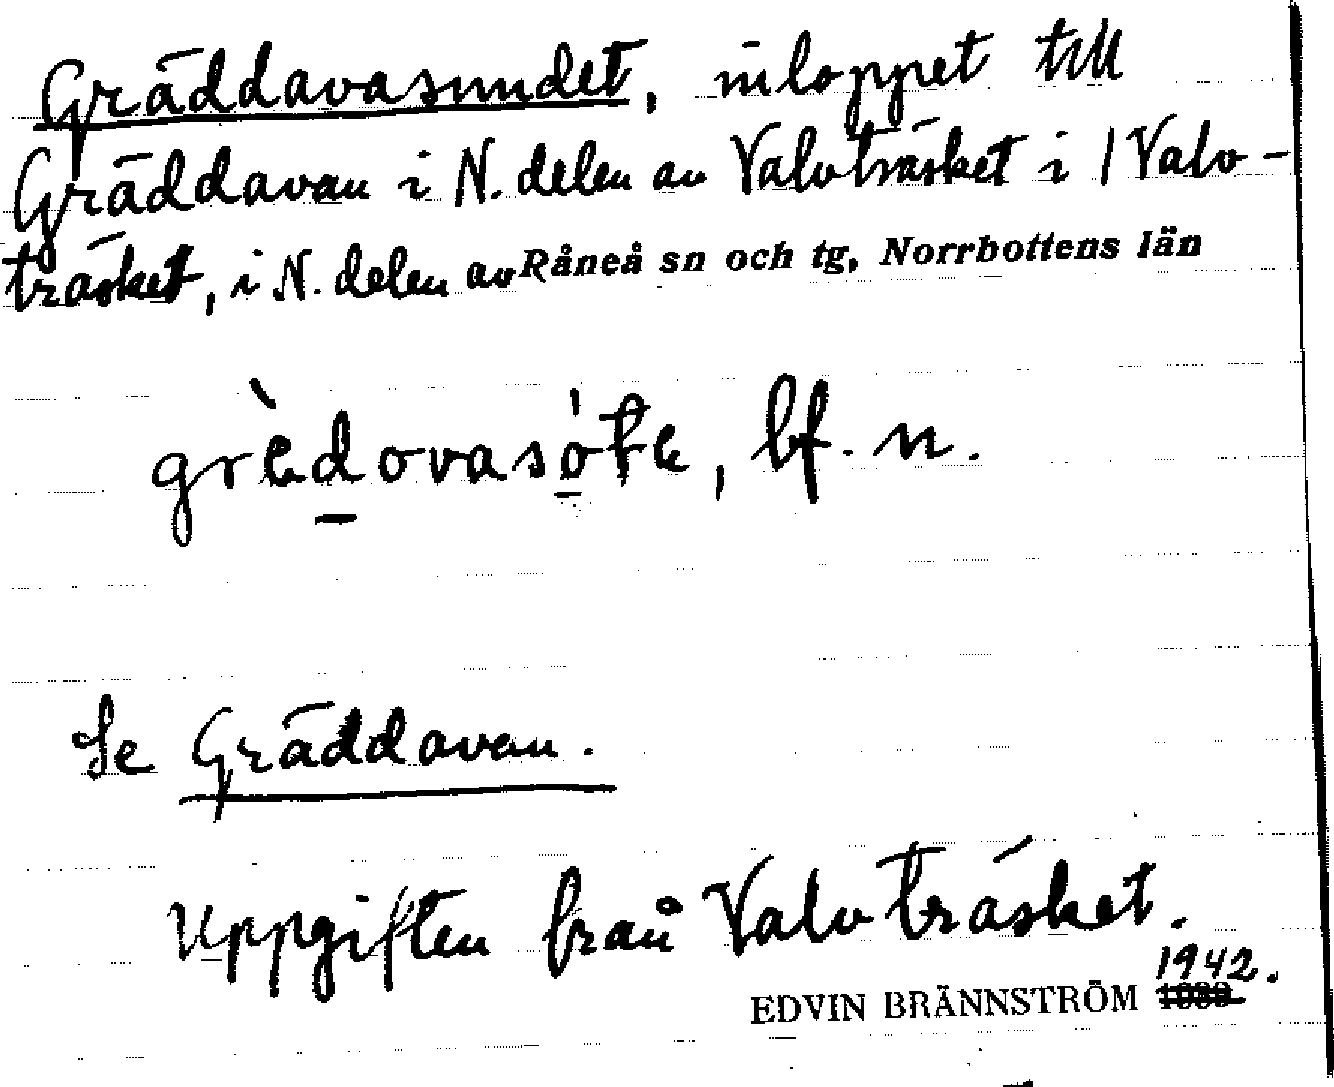 Gräddavasundet, inloppet till
Gräddavan i N. delen av Valvträsket i / Valv-
träsket, i N. delen av Råneå sn och tg, Norrbottens län
grèd̲ovasò̲te, bf. n.
Se Gräddavan.
Uppgiften från Valvträsket.
1942.
EDVIN BRÄNNSTRÖM 1939